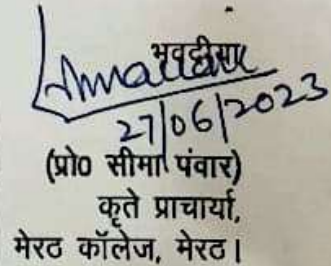 भवदीया
27/06/2023
(प्रो0 सीमा पंवार)
कृते प्राचार्या,
मेरठ कॉलेज, मेरठ।